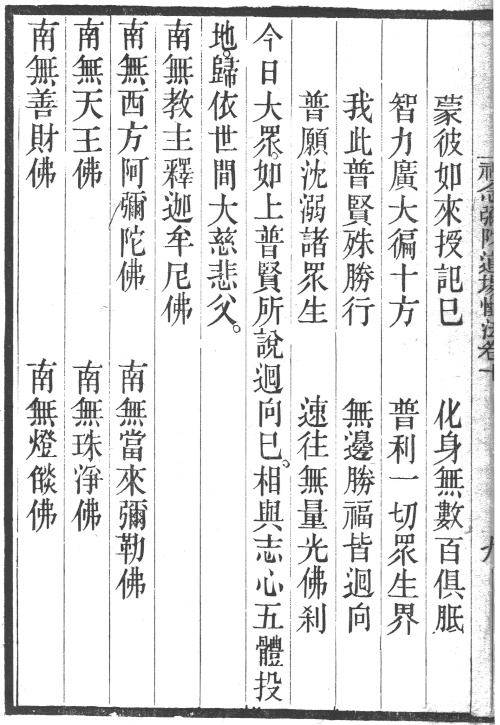 蒙彼如來授記已　化身無數百俱胝
智力廣大徧十方　普利一切眾生界
我此普賢殊勝行　無邊勝福皆迴向
普願沈溺諸眾生　速往無量光佛刹
今日大眾。如上普賢所說迴向已。相與志心五體投
地。歸依世間大慈悲父。
南無教主釋迦牟尼佛
南無西方阿彌陀佛　南無當來彌勒佛
南無天王佛　南無珠淨佛
南無善財佛　南無燈燄佛